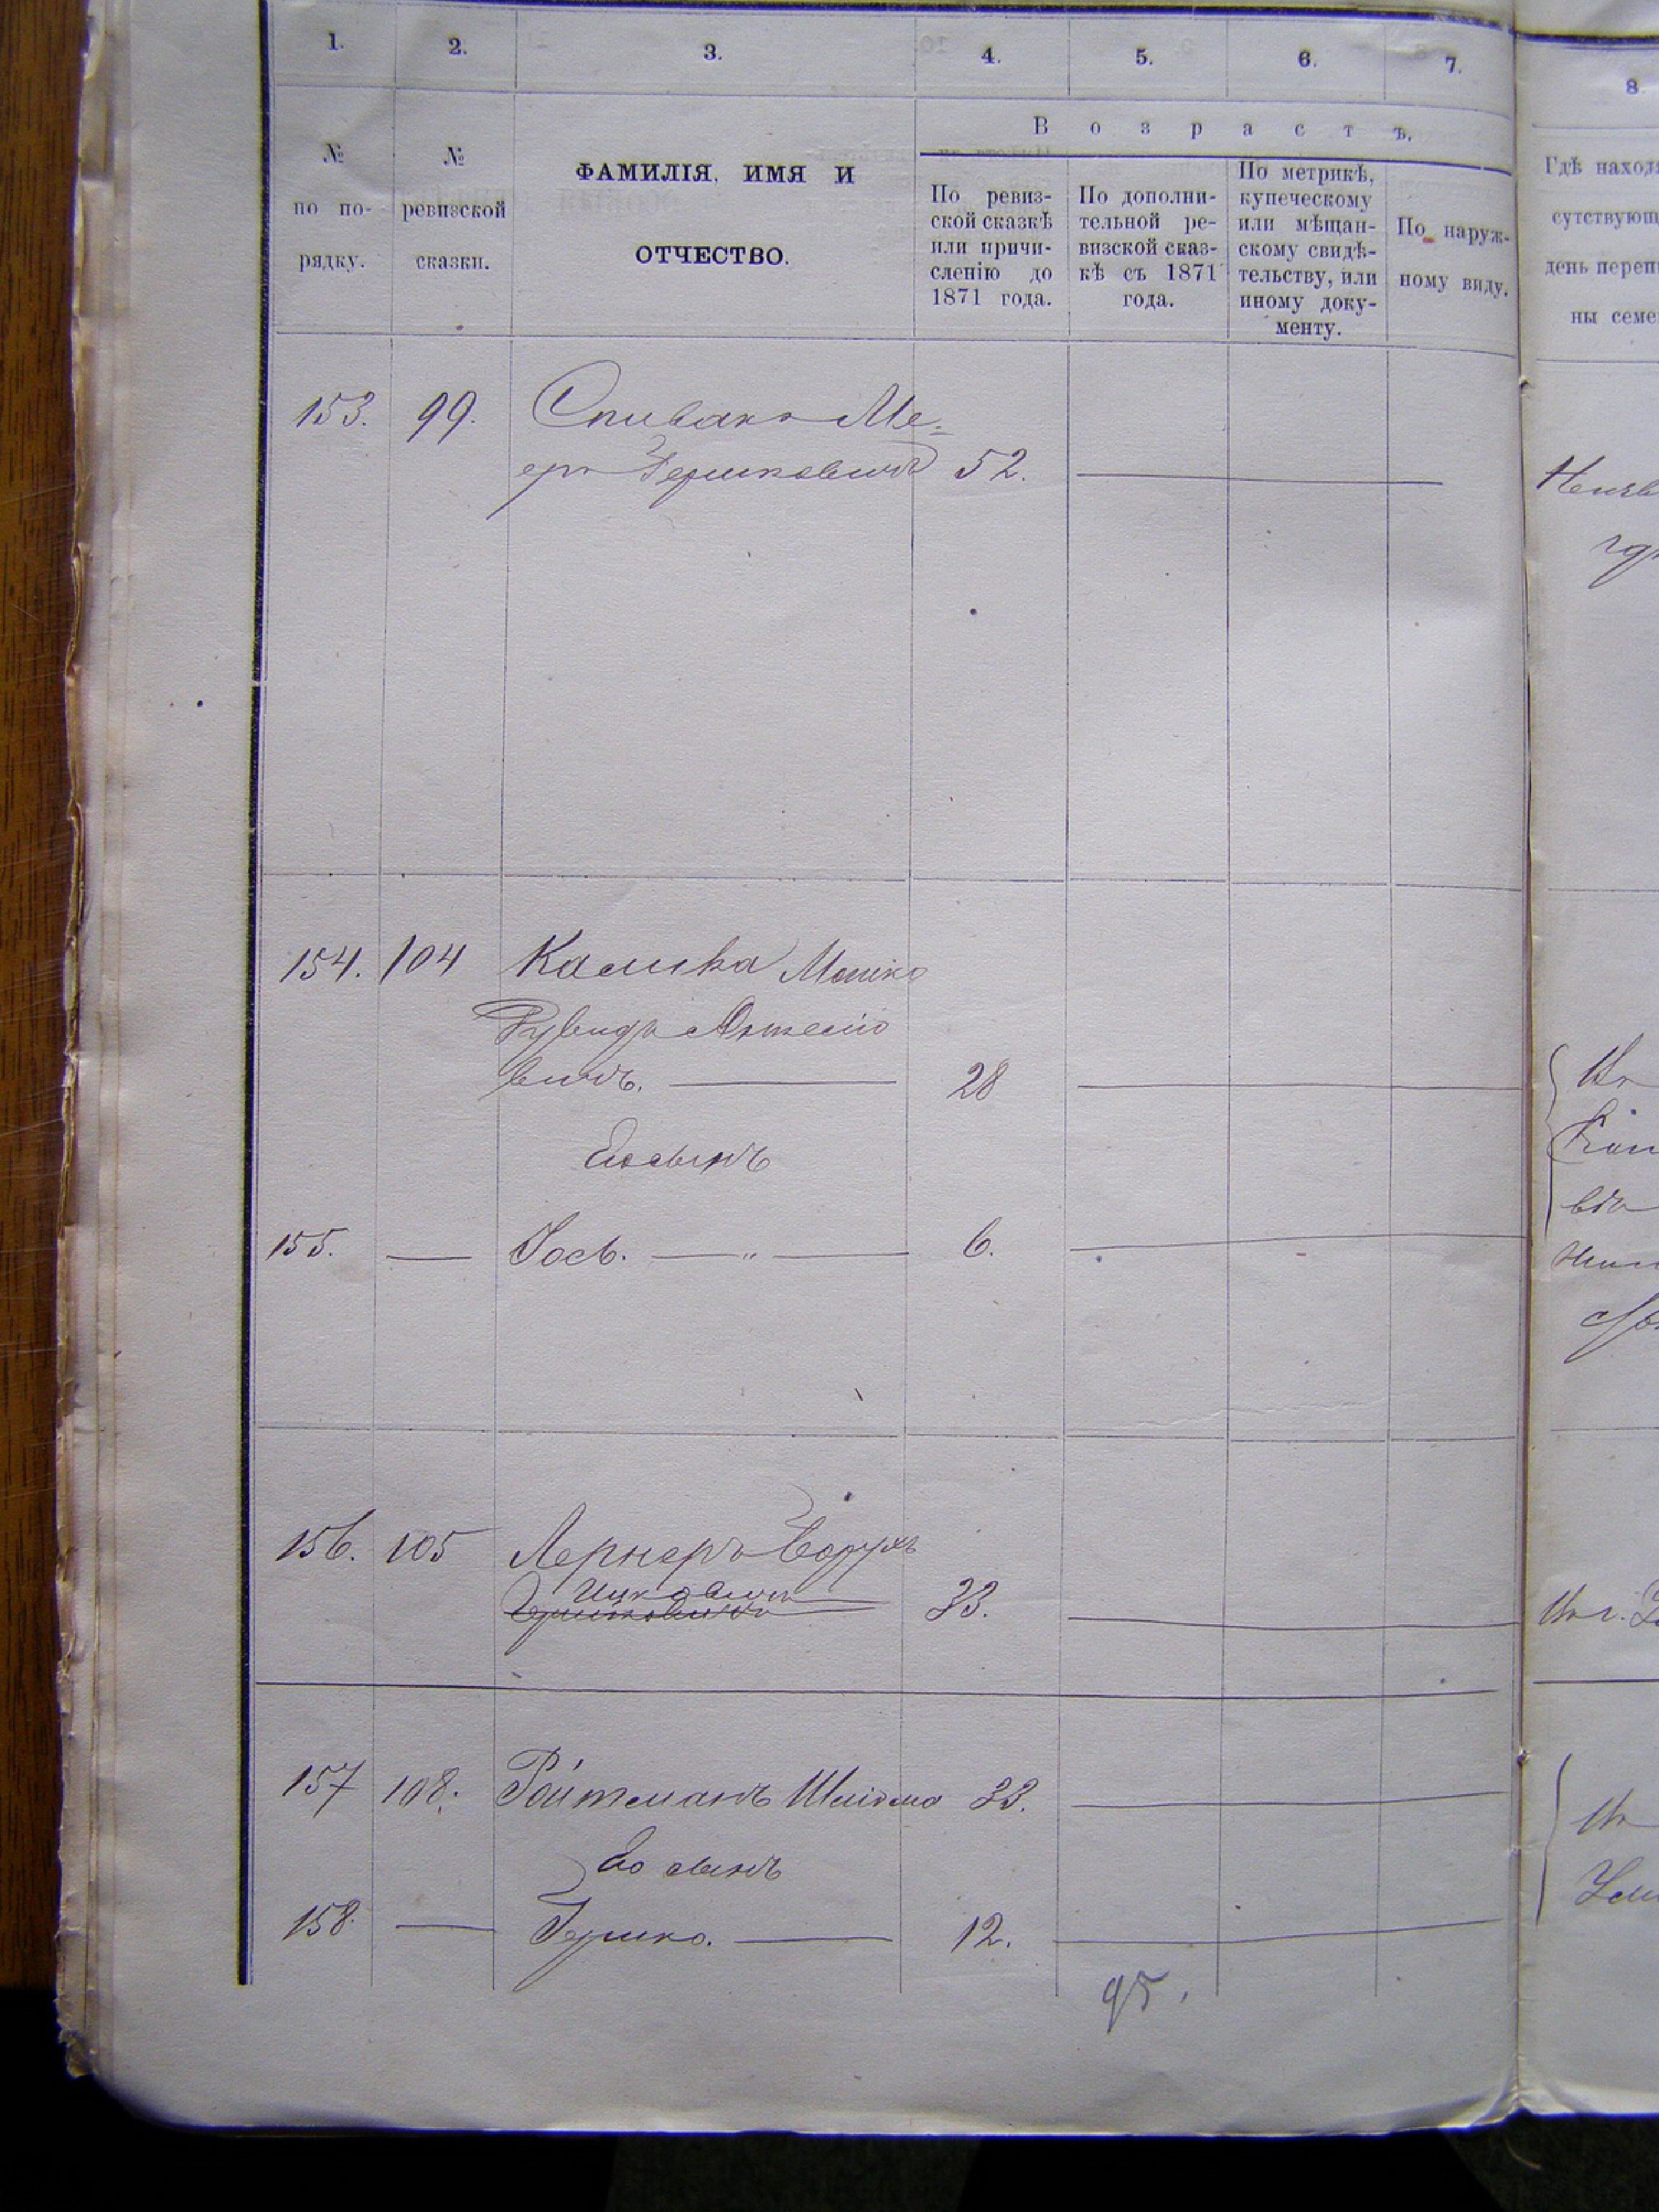 1. 2. 3. 4. 5. 6. 7. 8.
В о з р а с т ъ.
№ по по-рядку.
№ ревизской сказки.
ФАМИЛІЯ, ИМЯ И
ОТЧЕСТВО.
По ревиз-
ской сказкѣ
или причи-
сленію до
1871 года.
По дополни-
тельной ре-
визской сказ-
кѣ съ 1871
года.
По метрикѣ,
купеческому
или мѣщан-
скому свидѣ-
тельству, или
иному доку-
менту.
По наруж-
ному виду.
Гдѣ наход
сутствующ
день переп
ны семе
153. 99. Спивакъ Ме-
еръ Гершковичъ 52.
154. 104 Калика Мошко
Рувидъ
вичъ. 28
Его сынъ
155. — Іось. — „ — 6.
156. 105 Лернеръ Борухъ
Ицковичъ
Гершковичъ 33.
157 108. Ройтманъ Шліома 33.
Его сынъ
158. — Гершко. — 12.
95.